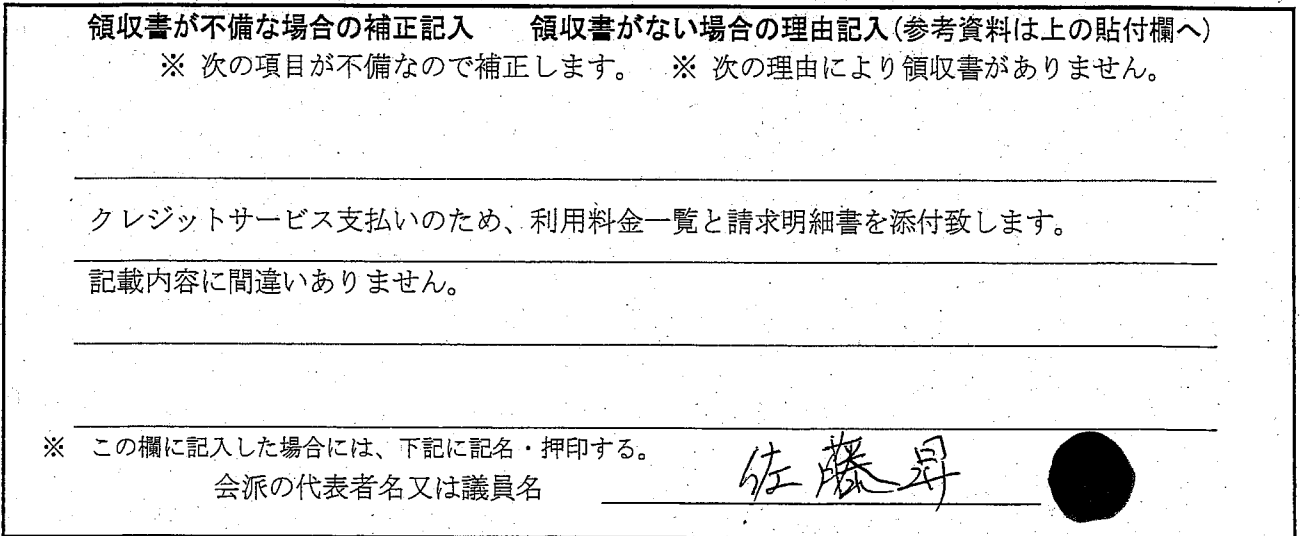 領収書が不備な場合の補正記入　　領収書がない場合の理由記入(参考資料は上の貼付欄へ)
※ 次の項目が不備なので補正します。　※ 次の理由により領収書がありません。
クレジットサービス支払いのため、利用料金一覧と請求明細書を添付致します。
記載内容に間違いありません。
※　この欄に記入した場合には、下記に記名・押印する。
会派の代表者名又は議員名　佐藤昇